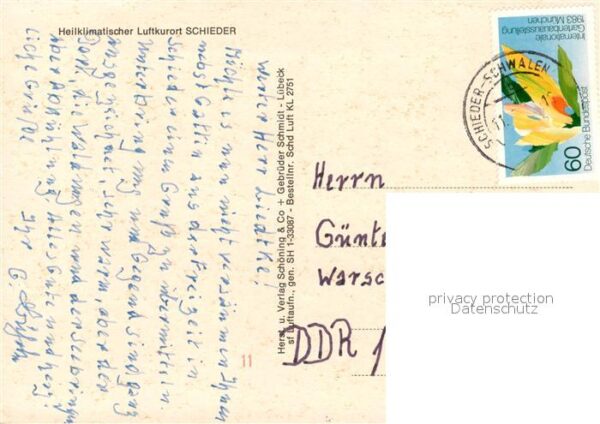 Heilklimatischer Luftkurort SCHIEDER
Werter Herr Liedtke!
Möchte es man nicht versäumen Ihnen
nebst Gattin aus der Freizeit in
Schieder einen Gruß zu übermitteln.
Unterbringung und Gegend sind ganz
ausgezeichnet, sehr warm, aber der
Dort, die Waldungen und der Seebringen
aber Abkühlung. Alles Gute und herz-
liche Grüße
Ihr G.
Herst. u. Verlag Schöning & Co + Gebrüder Schmidt - Lübeck
sf Luftaufn., gen. SH 1-33087 - Bestellnr. Schd Luft KL 2751
11
Herrn
Günte
Warsc
DDR 1
privacy protection
Datenschutz
SCHIEDER-SCHWALEN
Internationale
Gartenbauausstellung
1983 München
60
Deutsche Bundespost